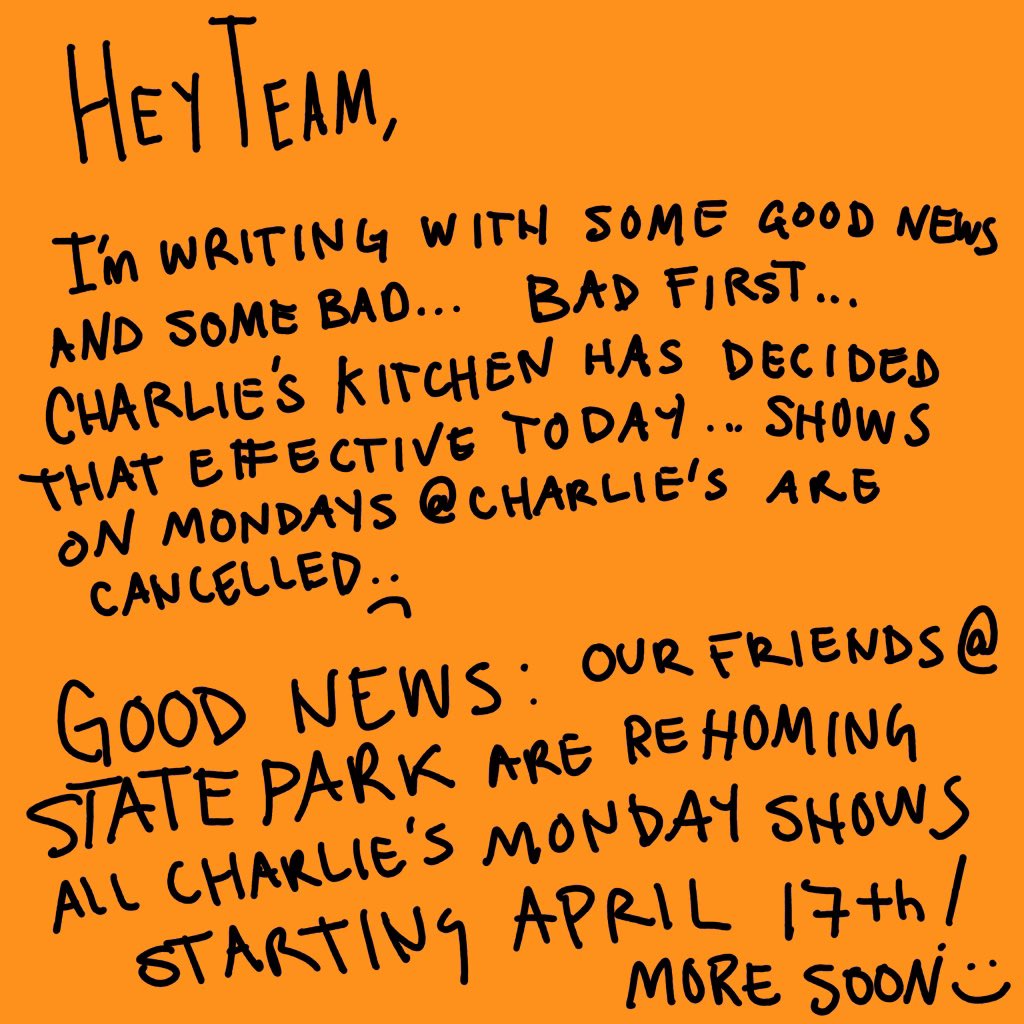 HEY TEAM,
I'm WRITING WITH SOME GOOD NEWS
AND SOME BAD... BAD FIRST...
CHARLIE'S KITCHEN HAS DECIDED
THAT EFFECTIVE TODAY... SHOWS
ON MONDAYS @CHARLIE'S ARE
CANCELLED :(
GOOD NEWS: OUR FRIENDS @
STATE PARK ARE REHOMING
ALL CHARLIE'S MONDAY SHOWS
STARTING APRIL 17th!
MORE SOON :)